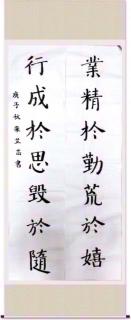 業精於勤荒於嬉
行成於思毀於隨
庚子秋朱芝蕊書